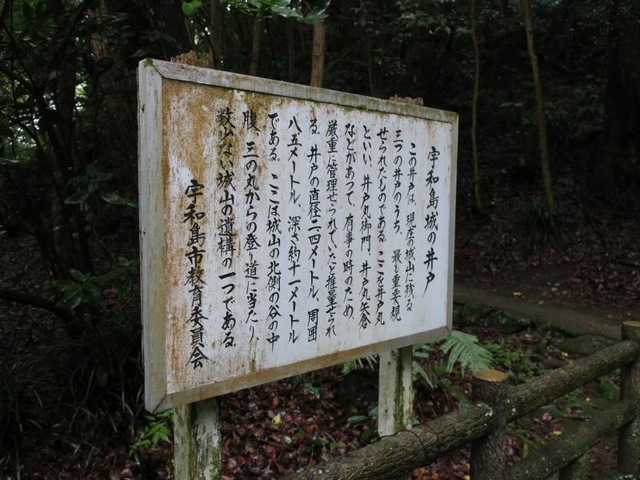 宇和島城の井戸
この井戸は、現在の城山に残る
三つの井戸のうち、最も重要視
せられたものである。ここを井戸丸
といい、井戸丸御門、井戸丸矢倉
などがあって、有事の時のため、
厳重に管理せられていたと推量せられ
る。井戸の直径二四メートル、周囲
八五メートル、深さ約十一メートル
である。ここは城山の北側の谷の中
腹、三の丸からの登り道に当たり、
数少ない城山の遺構の一つである。
宇和島市教育委員会